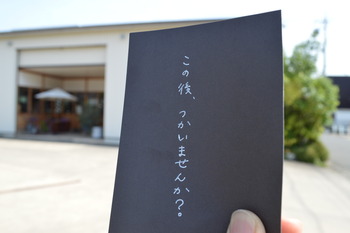 この後、つかいませんか？。